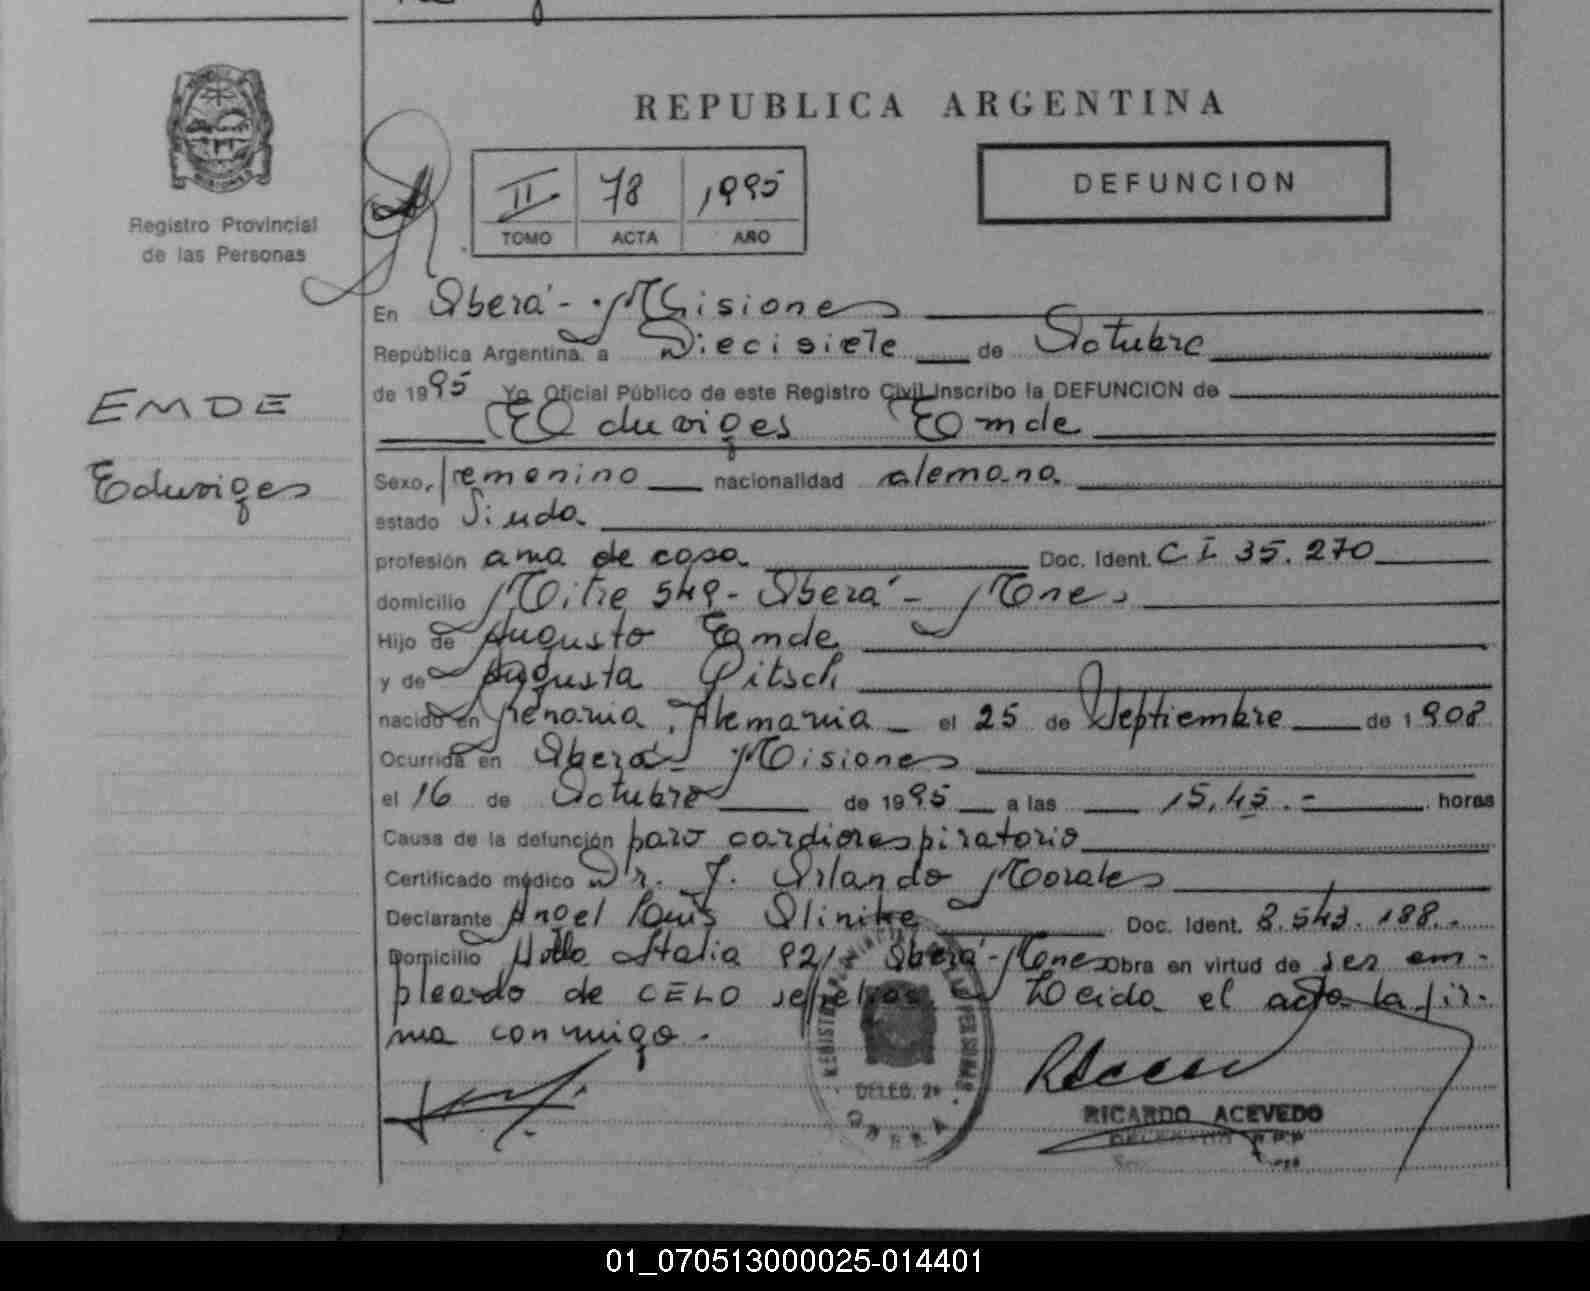 REPUBLICA ARGENTINA
Registro Provincial
de las Personas
II 78 1995
TOMO ACTA AÑO
DEFUNCION
EMDE
Eduviges
En Oberá - Misiones
República Argentina, a Diecisiete de Octubre
de 1995 Yo Oficial Público de este Registro Civil Inscribo la DEFUNCION de
Eduviges Emde
Sexo, Femenino nacionalidad alemana
estado Viuda
profesión ama de casa Doc. Ident. C I 35.270
domicilio Mitre 549 - Oberá - Mnes
Hijo de Augusto Emde
y de Augusta Pitsch
nacido en Renania, Alemania el 25 de Septiembre de 1908
Ocurrida en Oberá - Misiones
el 16 de Octubre de 1995 a las 15,45.- horas
Causa de la defunción paro cardiorespiratorio
Certificado médico Dr. J. Orlando Morales
Declarante Angel Luis Doc. Ident. 8.543.188.-
Domicilio Italia 92 Oberá - Mnes Obra en virtud de ser em-
pleado de CELO sepelios Leida el acta la fir-
ma conmigo.
DELEG. 2a
OBERA
RICARDO ACEVEDO
01_070513000025-014401